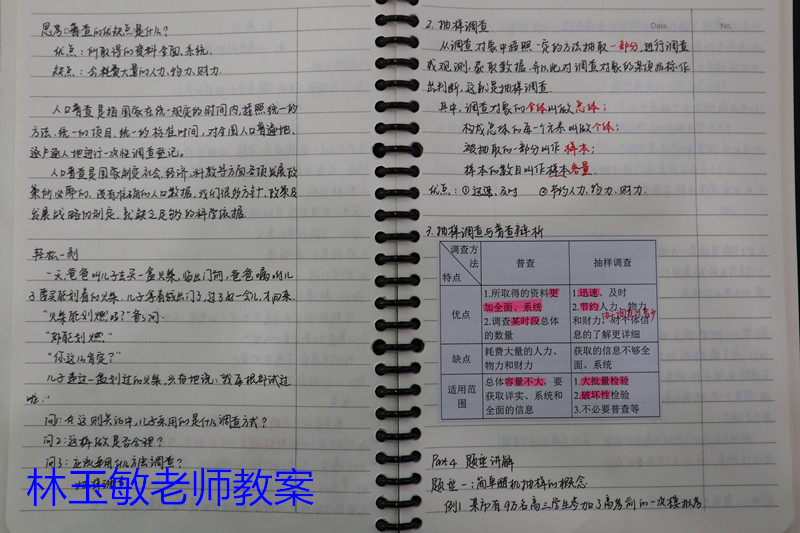 思考：普查的优缺点是什么？
优点：所取得的资料全面、系统.
缺点：会耗费大量的人力、物力、财力.
人口普查是指国家在统一规定的时间内，按照统一的
方法、统一的项目、统一的标准时间，对全国人口普遍地、
逐户逐人地进行一次性调查登记。
人口普查是国家制定社会、经济、科教等方面各项发展政
策所必需的、没有准确的人口数据，我们很多方针、政策及
发展战略的制定，就缺乏足够的科学依据.
轻松一刻
一天，爸爸叫儿子去买一盒火柴，临出门前，爸爸嘱咐儿
子要买能划着的火柴，儿子拿着钱出门了，过了好一会儿，才回来.
“火柴能划燃吗？”爸爸问.
“都能划燃.”
“你这么肯定？”
儿子递过一盒划过的火柴，兴奋地说：“我每根都试过
啦.”
问1：在这则笑话中，儿子采用的是什么调查方式？
问2：这样做是否合理？
问3：应该采用什么方法调查？
抽样调查
林玉敏老师教案
Date. No.
2. 抽样调查
从调查对象中按照一定的方法抽取一部分，进行调查
或观测，获取数据，并以此对调查对象的某项指标作
出判断，这就是抽样调查.
其中，调查对象的全体叫做总体；
构成总体的每一个元素叫做个体；
被抽取的一部分叫作样本；
样本的数目叫作样本容量.
优点：①迅速、及时 ②节约人力、物力、财力.
3. 抽样调查与普查辨析
调查方法 特点 普查 抽样调查
优点 1.所取得的资料更加全面、系统 2.调查某时段总体的数量 1.迅速、及时 2.节约人力、物力和财力，对个体信息的了解更详细
缺点 耗费大量的人力、物力和财力 获取的信息不够全面、系统
适用范围 总体容量不大，要获取详实、系统和全面的信息 1.大批量检验 2.破坏性检验 3.不必要普查等
Part 4 题型讲解
题型一：简单随机抽样的概念
例1 某市有9万名高三学生参加了高考前的一次模拟考